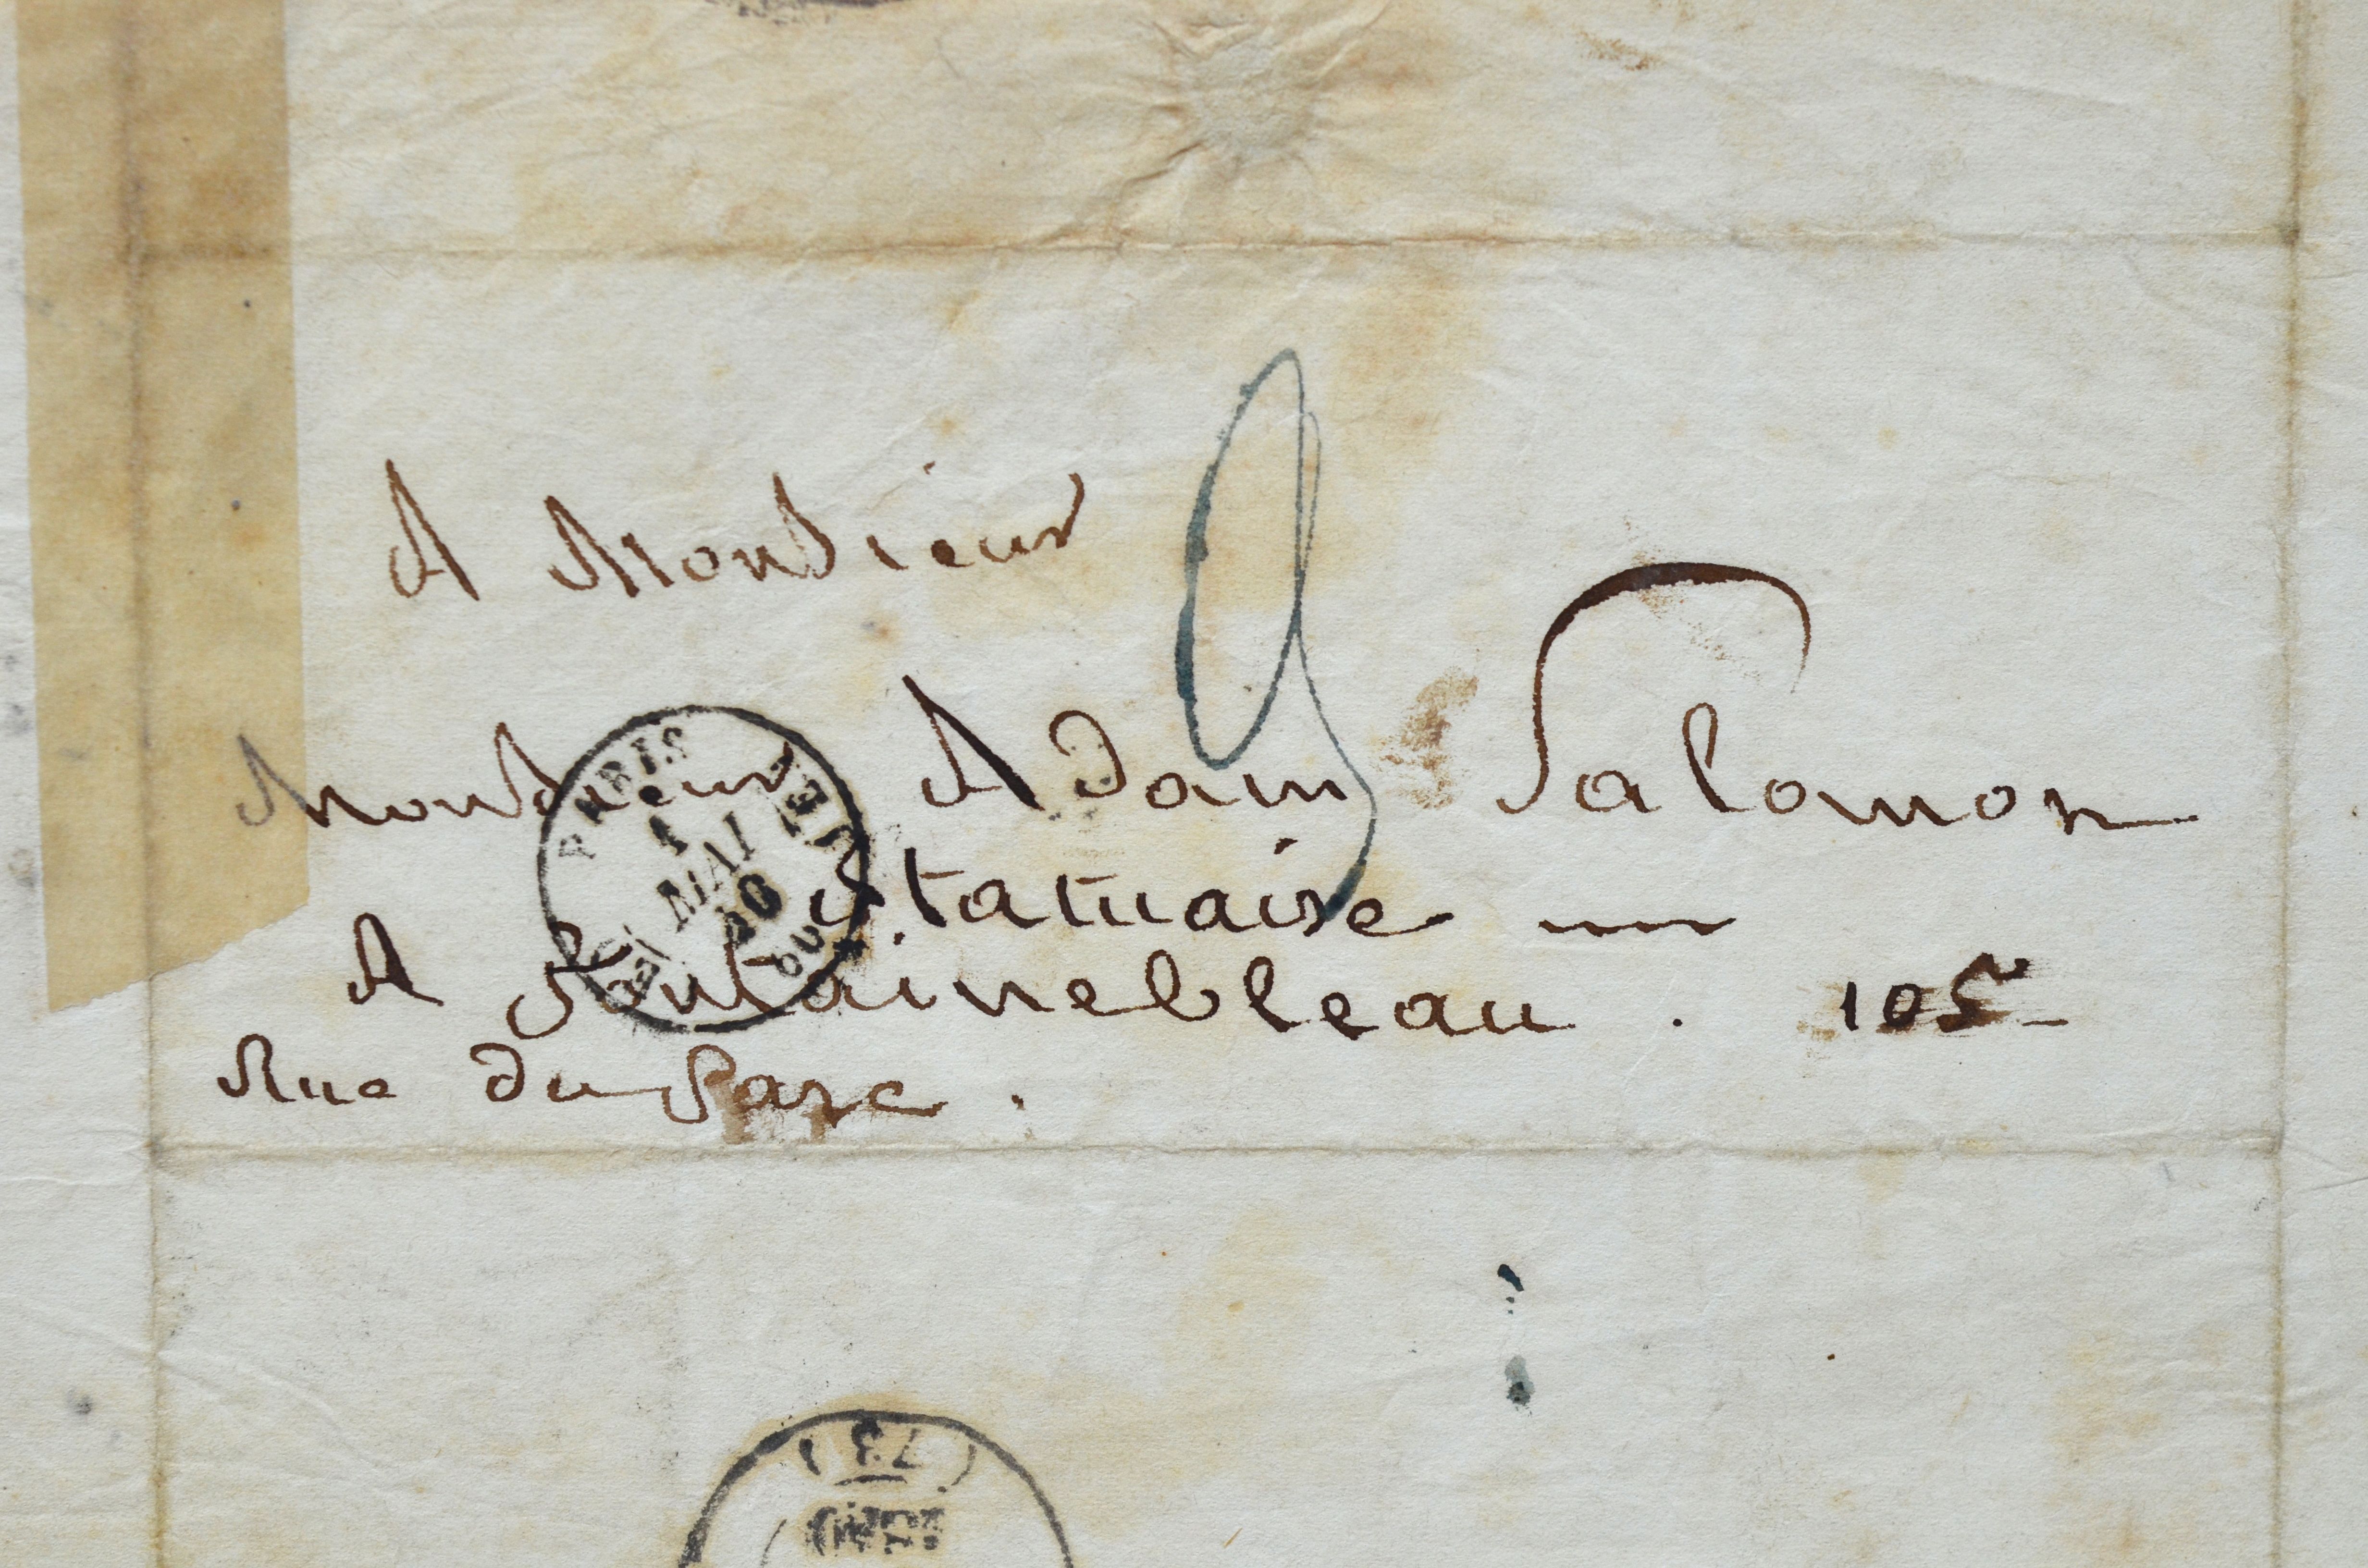 A Monsieur
Monsieur Adam Salomon
Statuaire
A Fontainebleau . 105
Rue du Parc .
PARIS
1
MAI
(73)